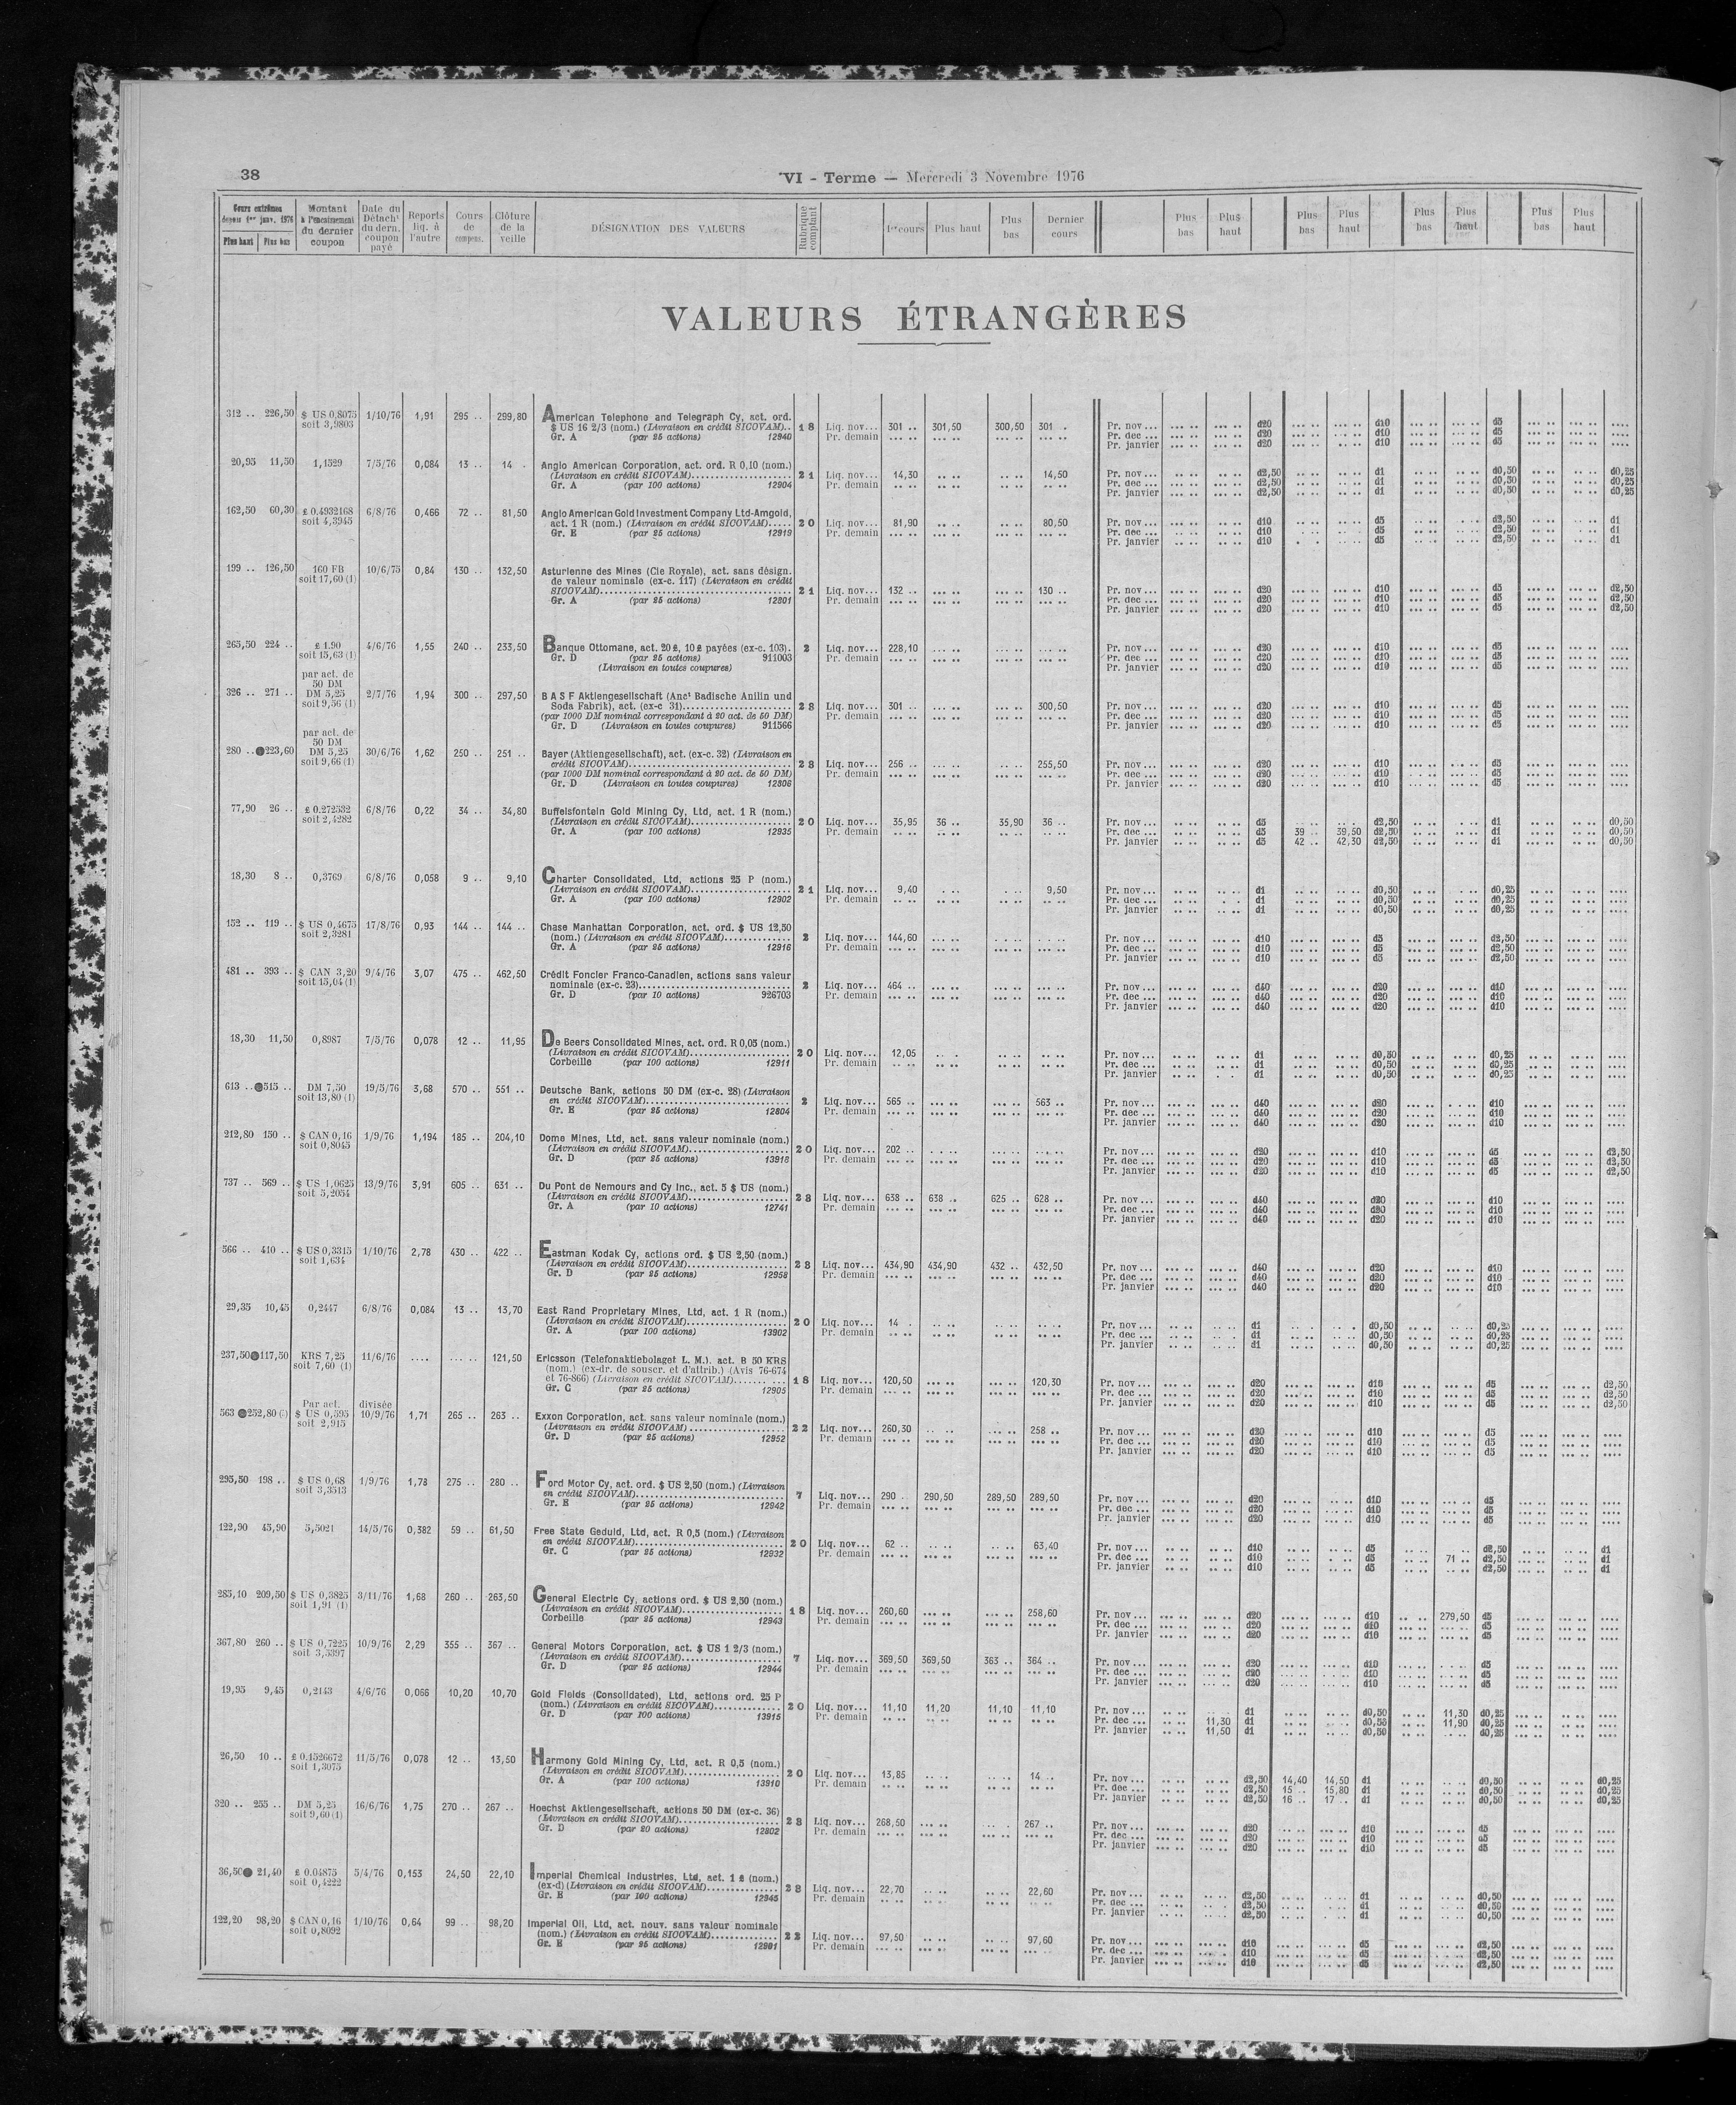 38
VI - Terme — Mercredi 3 Novembre 1976
Cours extrêmes depuis 1er janv. 1976 Plus haut Plus bas | Montant à l'encaissement du dernier coupon | Date du Détacht du dern. coupon payé | Reports liq. à l'autre | Cours de compens. | Clôture de la veille | DÉSIGNATION DES VALEURS | Rubrique comptant | 1er cours | Plus haut | Plus bas | Dernier cours | Plus bas | Plus haut | Plus bas | Plus haut | Plus bas | Plus haut | Plus bas | Plus haut
VALEURS ÉTRANGÈRES
312 .. 226,50 $ US 0,8075 1/10/76 1,91 295 .. 299,80 American Telephone and Telegraph Cy, act. ord.
soit 3,9803 $ US 16 2/3 (nom.) (Livraison en crédit SICOVAM).. 18 Liq. nov... 301 .. 301,50 300,50 301 . Pr. nov... d20 d10 d5
Gr. A (par 25 actions) 12940 Pr. demain Pr. dec ... d20 d10 d5
Pr. janvier d20 d10 d5
20,95 11,50 1,1529 7/5/76 0,084 13 .. 14 . Anglo American Corporation, act. ord. R 0,10 (nom.)
(Livraison en crédit SICOVAM) 21 Liq. nov... 14,30 14,50 Pr. nov... d2,50 d1 d0,50 d0,25
Gr. A (par 100 actions) 12904 Pr. demain Pr. dec ... d2,50 d1 d0,50 d0,25
Pr. janvier d2,50 d1 d0,50 d0,25
162,50 60,30 £ 0.4932168 6/8/76 0,466 72 .. 81,50 Anglo American Gold Investment Company Ltd-Amgold,
soit 4,3945 act. 1 R (nom.) (Livraison en crédit SICOVAM)..... 20 Liq. nov... 81,90 80,50 Pr. nov... d10 d5 d2,50 d1
Gr. E (par 25 actions) 12919 Pr. demain Pr. dec ... d10 d5 d2,50 d1
Pr. janvier d10 d5 d2,50 d1
199 .. 126,50 160 FB 10/6/75 0,84 130 .. 132,50 Asturienne des Mines (Cie Royale), act. sans désign.
soit 17,60 (1) de valeur nominale (ex-c. 117) (Livraison en crédit
SICOVAM) 21 Liq. nov... 132 .. 130 .. Pr. nov... d20 d10 d5 d2,50
Gr. A (par 25 actions) 12801 Pr. demain Pr. dec ... d20 d10 d5 d2,50
Pr. janvier d20 d10 d5 d2,50
265,50 224 .. £ 1.90 4/6/76 1,55 240 .. 233,50 Banque Ottomane, act. 20 £, 10 £ payées (ex-c. 103). 2 Liq. nov... 228,10 Pr. nov... d20 d10 d5
soit 15,63 (1) Gr. D (par 25 actions) 911003 Pr. demain Pr. dec ... d20 d10 d5
(Livraison en toutes coupures) Pr. janvier d20 d10 d5
par act. de
50 DM
326 .. 271 .. DM 5,25 2/7/76 1,94 300 .. 297,50 B A S F Aktiengesellschaft (Anct Badische Anilin und
soit 9,56 (1) Soda Fabrik), act. (ex-c 31) 28 Liq. nov... 301 .. 300,50 Pr. nov... d20 d10 d5
(par 1000 DM nominal correspondant à 20 act. de 50 DM) Pr. demain Pr. dec ... d20 d10 d5
Gr. D (Livraison en toutes coupures) 911566 Pr. janvier d20 d10 d5
par act. de
50 DM
280 .. 223,60 DM 5,25 30/6/76 1,62 250 .. 251 .. Bayer (Aktiengesellschaft), act. (ex-c. 32) (Livraison en
soit 9,66 (1) crédit SICOVAM) 28 Liq. nov... 256 .. 255,50 Pr. nov... d20 d10 d5
(par 1000 DM nominal correspondant à 20 act. de 50 DM) Pr. demain Pr. dec ... d20 d10 d5
Gr. D (Livraison en toutes coupures) 12806 Pr. janvier d20 d10 d5
77,90 26 .. £ 0.272532 6/8/76 0,22 34 .. 34,80 Buffelsfontein Gold Mining Cy, Ltd, act. 1 R (nom.)
soit 2,4282 (Livraison en crédit SICOVAM) 20 Liq. nov... 35,95 36 .. 35,90 36 .. Pr. nov... d5 d2,50 d1 d0,50
Gr. A (par 100 actions) 12935 Pr. demain Pr. dec ... d5 39 .. 39,50 d2,50 d1 d0,50
Pr. janvier d5 42 .. 42,30 d2,50 d1 d0,50
18,30 8 .. 0,3769 6/8/76 0,058 9 .. 9,10 Charter Consolidated, Ltd, actions 25 P (nom.)
(Livraison en crédit SICOVAM) 21 Liq. nov... 9,40 9,50 Pr. nov... d1 d0,50 d0,25
Gr. A (par 100 actions) 12902 Pr. demain Pr. dec ... d1 d0,50 d0,25
Pr. janvier d1 d0,50 d0,25
152 .. 119 .. $ US 0,4675 17/8/76 0,93 144 .. 144 .. Chase Manhattan Corporation, act. ord. $ US 12,50
soit 2,3281 (nom.) (Livraison en crédit SICOVAM) 2 Liq. nov... 144,60 Pr. nov... d10 d5 d2,50
Gr. A (par 25 actions) 12916 Pr. demain Pr. dec ... d10 d5 d2,50
Pr. janvier d10 d5 d2,50
481 .. 393 .. $ CAN 3,20 9/4/76 3,07 475 .. 462,50 Crédit Foncier Franco-Canadien, actions sans valeur
soit 15,04 (1) nominale (ex-c. 23) 2 Liq. nov... 464 .. Pr. nov... d40 d20 d10
Gr. D (par 10 actions) 926703 Pr. demain Pr. dec ... d40 d20 d10
Pr. janvier d40 d20 d10
18,30 11,50 0,8987 7/5/76 0,078 12 .. 11,95 De Beers Consolidated Mines, act. ord. R 0,05 (nom.)
(Livraison en crédit SICOVAM) 20 Liq. nov... 12,05 Pr. nov... d1 d0,50 d0,25
Corbeille (par 100 actions) 12911 Pr. demain Pr. dec ... d1 d0,50 d0,25
Pr. janvier d1 d0,50 d0,25
613 .. 515 .. DM 7,50 19/5/76 3,68 570 .. 551 .. Deutsche Bank, actions 50 DM (ex-c. 28) (Livraison
soit 13,80 (1) en crédit SICOVAM) 2 Liq. nov... 565 .. 563 .. Pr. nov... d40 d20 d10
Gr. E (par 25 actions) 12804 Pr. demain Pr. dec ... d40 d20 d10
Pr. janvier d40 d20 d10
212,80 150 .. $ CAN 0,16 1/9/76 1,194 185 .. 204,10 Dome Mines, Ltd, act. sans valeur nominale (nom.)
soit 0,8045 (Livraison en crédit SICOVAM) 20 Liq. nov... 202 .. Pr. nov... d20 d10 d5 d2,50
Gr. D (par 25 actions) 13918 Pr. demain Pr. dec ... d20 d10 d5 d2,50
Pr. janvier d20 d10 d5 d2,50
737 .. 569 .. $ US 1,0625 13/9/76 3,91 605 .. 631 .. Du Pont de Nemours and Cy Inc., act. 5 $ US (nom.)
soit 5,2054 (Livraison en crédit SICOVAM) 28 Liq. nov... 638 .. 638 .. 625 .. 628 .. Pr. nov... d40 d20 d10
Gr. A (par 10 actions) 12741 Pr. demain Pr. dec ... d40 d20 d10
Pr. janvier d40 d20 d10
566 .. 410 .. $ US 0,3315 1/10/76 2,78 430 .. 422 .. Eastman Kodak Cy, actions ord. $ US 2,50 (nom.)
soit 1,634 (Livraison en crédit SICOVAM) 28 Liq. nov... 434,90 434,90 432 .. 432,50 Pr. nov... d40 d20 d10
Gr. D (par 25 actions) 12958 Pr. demain Pr. dec ... d40 d20 d10
Pr. janvier d40 d20 d10
29,35 10,45 0,2447 6/8/76 0,084 13 .. 13,70 East Rand Proprietary Mines, Ltd, act. 1 R (nom.)
(Livraison en crédit SICOVAM) 20 Liq. nov... 14 . Pr. nov... d1 d0,50 d0,25
Gr. A (par 100 actions) 13902 Pr. demain Pr. dec ... d1 d0,50 d0,25
Pr. janvier d1 d0,50 d0,25
237,50 117,50 KRS 7,25 11/6/76 .... ... .. 121,50 Ericsson (Telefonaktiebolaget L. M.). act. B 50 KRS
soit 7,60 (1) (nom.) (ex-dr. de souscr. et d'attrib.) (Avis 76-674
et 76-866) (Livraison en crédit SICOVAM) 18 Liq. nov... 120,50 120,30 Pr. nov... d20 d10 d5 d2,50
Gr. C (par 25 actions) 12905 Pr. demain Pr. dec ... d20 d10 d5 d2,50
Par act. divisée Pr. janvier d20 d10 d5 d2,50
563 252,80 $ US 0,595 10/9/76 1,71 265 .. 263 .. Exxon Corporation, act. sans valeur nominale (nom.)
soit 2,915 (Livraison en crédit SICOVAM) 22 Liq. nov... 260,30 258 .. Pr. nov... d20 d10 d5
Gr. D (par 25 actions) 12952 Pr. demain Pr. dec ... d20 d10 d5
Pr. janvier d20 d10 d5
295,50 198 .. $ US 0,68 1/9/76 1,78 275 .. 280 .. Ford Motor Cy, act. ord. $ US 2,50 (nom.) (Livraison
soit 3,3513 en crédit SICOVAM) 7 Liq. nov... 290 .. 290,50 289,50 289,50 Pr. nov... d20 d10 d5
Gr. E (par 25 actions) 12942 Pr. demain Pr. dec ... d20 d10 d5
Pr. janvier d20 d10 d5
122,90 45,90 5,5021 14/5/76 0,382 59 .. 61,50 Free State Geduld, Ltd, act. R 0,5 (nom.) (Livraison
en crédit SICOVAM) 20 Liq. nov... 62 .. 63,40 Pr. nov... d10 d5 d2,50 d1
Gr. C (par 25 actions) 12932 Pr. demain Pr. dec ... d10 d5 71 .. d2,50 d1
Pr. janvier d10 d5 d2,50 d1
285,10 209,50 $ US 0,3825 3/11/76 1,68 260 .. 263,50 General Electric Cy, actions ord. $ US 2,50 (nom.)
soit 1,91 (1) (Livraison en crédit SICOVAM) 18 Liq. nov... 260,60 258,60 Pr. nov... d20 d10 279,50 d5
Corbeille (par 25 actions) 12943 Pr. demain Pr. dec ... d20 d10 d5
Pr. janvier d20 d10 d5
367,80 260 .. $ US 0,7225 10/9/76 2,29 355 .. 367 .. General Motors Corporation, act. $ US 1 2/3 (nom.)
soit 3,5397 (Livraison en crédit SICOVAM) 7 Liq. nov... 369,50 369,50 363 .. 364 .. Pr. nov... d20 d10 d5
Gr. D (par 25 actions) 12944 Pr. demain Pr. dec ... d20 d10 d5
Pr. janvier d20 d10 d5
19,95 9,45 0,2143 4/6/76 0,066 10,20 10,70 Gold Fields (Consolidated), Ltd, actions ord. 25 P
(nom.) (Livraison en crédit SICOVAM) 20 Liq. nov... 11,10 11,20 11,10 11,10 Pr. nov... d1 d0,50 11,30 d0,25
Gr. D (par 100 actions) 13915 Pr. demain Pr. dec ... 11,30 d1 d0,50 11,90 d0,25
Pr. janvier 11,50 d1 d0,50 d0,25
26,50 10 .. £ 0.1526672 11/5/76 0,078 12 .. 13,50 Harmony Gold Mining Cy, Ltd, act. R 0,5 (nom.)
soit 1,3075 (Livraison en crédit SICOVAM) 20 Liq. nov... 13,85 14 .. Pr. nov... d2,50 14,40 14,50 d1 d0,50 d0,25
Gr. A (par 100 actions) 13910 Pr. demain Pr. dec ... d2,50 15 .. 15,80 d1 d0,50 d0,25
Pr. janvier d2,50 16 .. 17 .. d1 d0,50 d0,25
320 .. 255 .. DM 5,25 16/6/76 1,75 270 .. 267 .. Hoechst Aktiengesellschaft, actions 50 DM (ex-c. 36)
soit 9,60 (1) (Livraison en crédit SICOVAM) 28 Liq. nov... 268,50 267 .. Pr. nov... d20 d10 d5
Gr. D (par 20 actions) 12802 Pr. demain Pr. dec ... d20 d10 d5
Pr. janvier d20 d10 d5
36,50 21,40 £ 0.04875 5/4/76 0,153 24,50 22,10 Imperial Chemical Industries, Ltd, act. 1 £ (nom.)
soit 0,4222 (ex-d) (Livraison en crédit SICOVAM) 28 Liq. nov... 22,70 22,60 Pr. nov... d2,50 d1 d0,50
Gr. E (par 100 actions) 12945 Pr. demain Pr. dec ... d2,50 d1 d0,50
Pr. janvier d2,50 d1 d0,50
122,20 98,20 $ CAN 0,16 1/10/76 0,64 99 .. 98,20 Imperial Oil, Ltd, act. nouv. sans valeur nominale
soit 0,8092 (nom.) (Livraison en crédit SICOVAM) 22 Liq. nov... 97,50 97,60 Pr. nov... d10 d5 d2,50
Gr. E (par 25 actions) 12991 Pr. demain Pr. dec ... d10 d5 d2,50
Pr. janvier d10 d5 d2,50